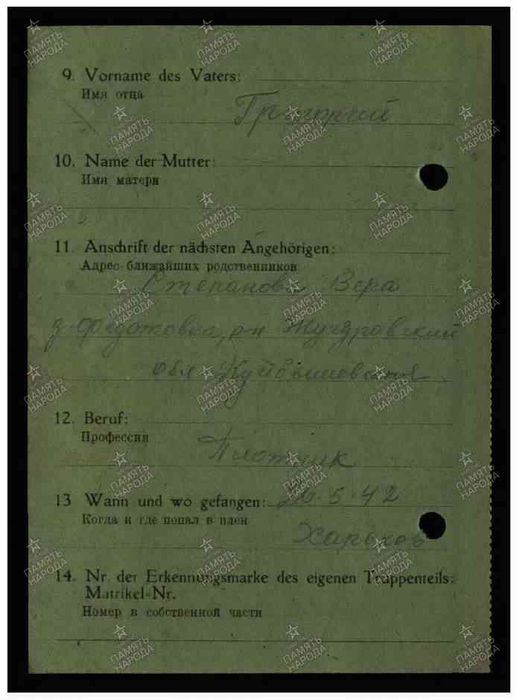 9. Vorname des Vaters:
Имя отца
Григорий
10. Name der Mutter:
Имя матери
11. Anschrift der nächsten Angehörigen:
Адрес ближайших родственников
Степанова Вера
д. Федотовка, р-н
обл. Куйбышевская
12. Beruf:
Профессия
Плотник
13 Wann und wo gefangen: 5.42
Когда и где попал в плен
Харьков
14. Nr. der Erkennungsmarke des eigenen Truppenteils:
Matrikel-Nr.
Номер в собственной части
ПАМЯТЬ НАРОДА